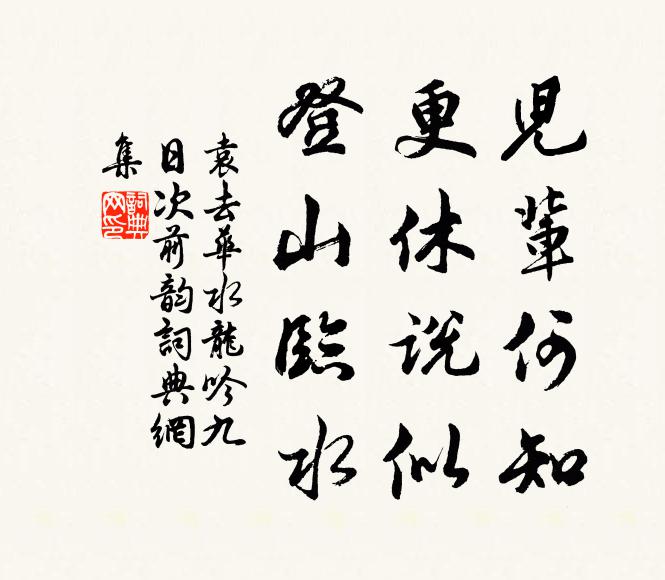 兒輩何知
更休說似
登山臨水
袁去華水龍吟九
日次前韵詞典網
集
詞典
网印